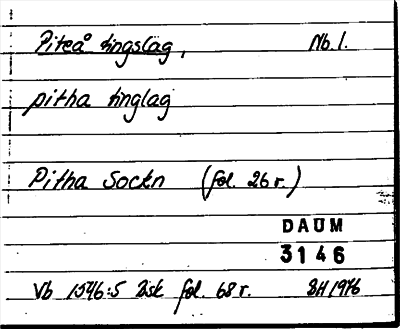 Piteå tingslag, Nb. 1.
pitha tinglag
Pitha Sockn (fol. 26 r.)
DAUM
3146
Vb 1546:5 Tisk fol. 68 r. BH 1976